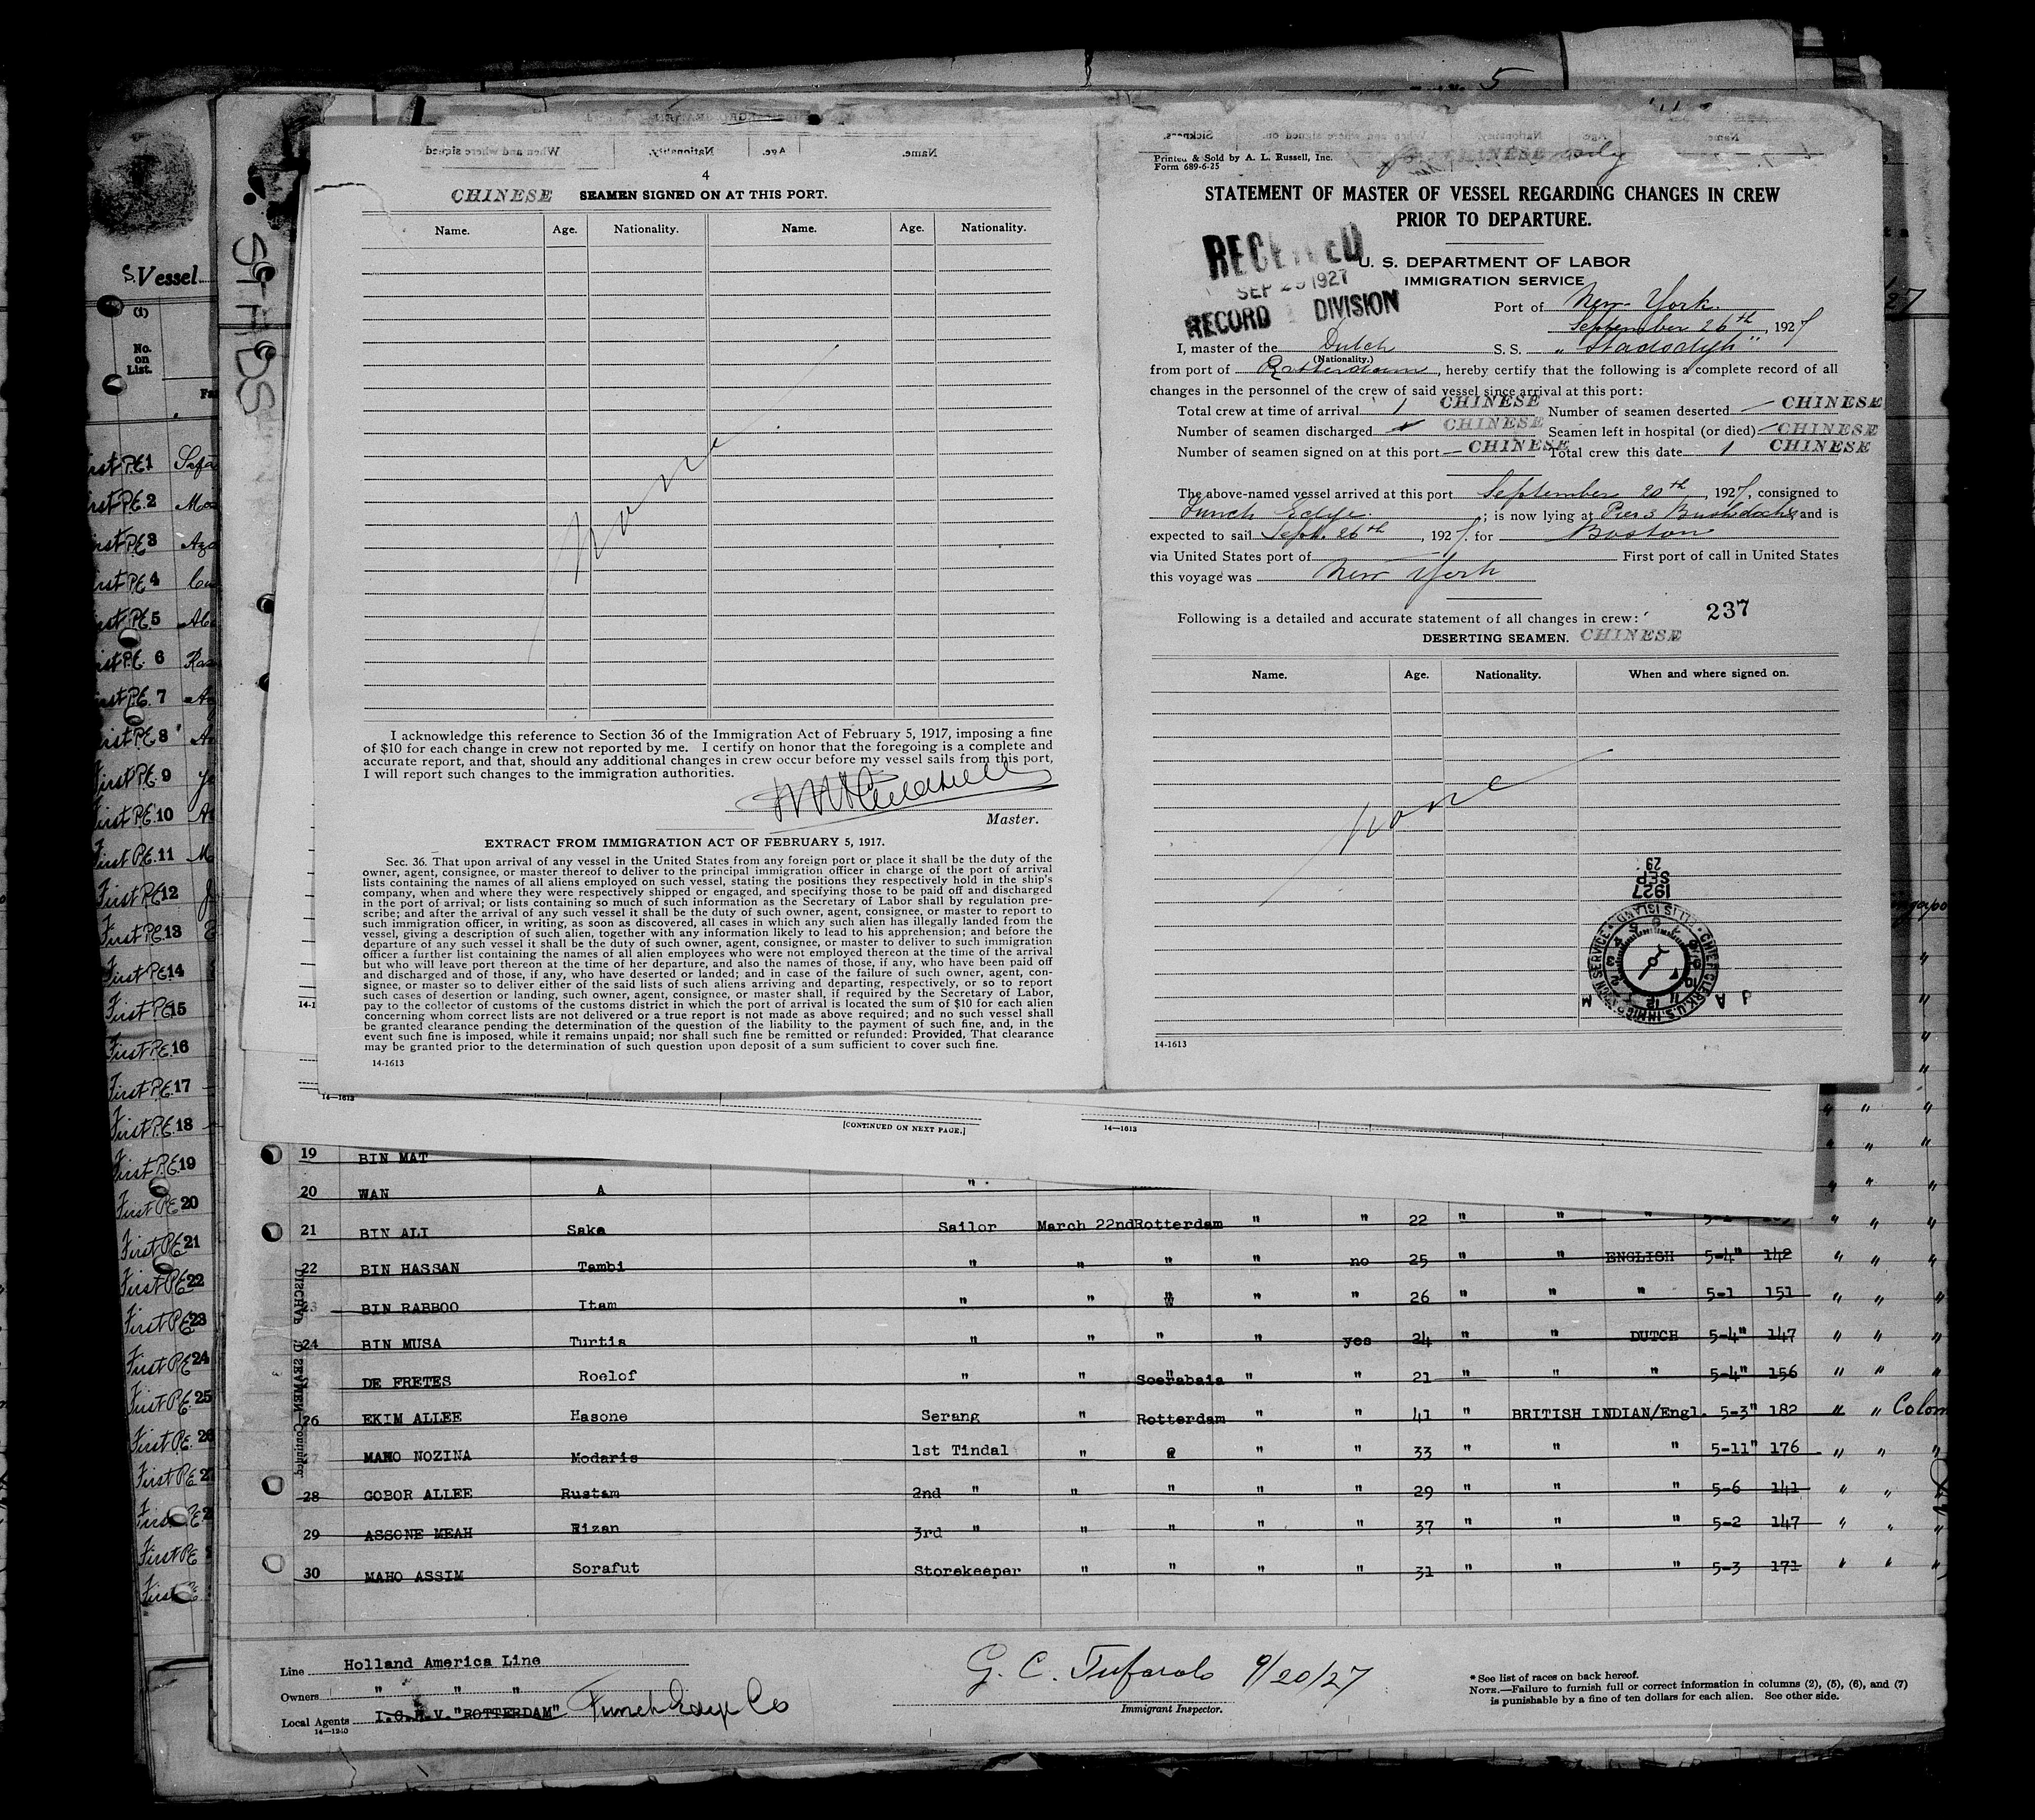 5
S. Vessel
(1)
No.
on
List.
First P.E. 1
First P.E. 2
First P.E. 3
First P.E. 4
First P.E. 5
First P.E. 6
First P.E. 7
First P.E. 8
First P.E. 9
First P.E. 10
First P.E. 11
First P.E. 12
First P.E. 13
First P.E. 14
First P.E. 15
First P.E. 16
First P.E. 17
First P.E. 18
First P.E. 19
First P.E. 20
First P.E. 21
First P.E. 22
First P.E. 23
First P.E. 24
First P.E. 25
First P.E. 26
First P.E. 27
4
CHINESE SEAMEN SIGNED ON AT THIS PORT.
Name. Age. Nationality. Name. Age. Nationality.
None
I acknowledge this reference to Section 36 of the Immigration Act of February 5, 1917, imposing a fine
of $10 for each change in crew not reported by me. I certify on honor that the foregoing is a complete and
accurate report, and that, should any additional changes in crew occur before my vessel sails from this port,
I will report such changes to the immigration authorities.
Master.
EXTRACT FROM IMMIGRATION ACT OF FEBRUARY 5, 1917.
Sec. 36. That upon arrival of any vessel in the United States from any foreign port or place it shall be the duty of the
owner, agent, consignee, or master thereof to deliver to the principal immigration officer in charge of the port of arrival
lists containing the names of all aliens employed on such vessel, stating the positions they respectively hold in the ship's
company, when and where they were respectively shipped or engaged, and specifying those to be paid off and discharged
in the port of arrival; or lists containing so much of such information as the Secretary of Labor shall by regulation pre-
scribe; and after the arrival of any such vessel it shall be the duty of such owner, agent, consignee, or master to report to
such immigration officer, in writing, as soon as discovered, all cases in which any such alien has illegally landed from the
vessel, giving a description of such alien, together with any information likely to lead to his apprehension; and before the
departure of any such vessel it shall be the duty of such owner, agent, consignee, or master to deliver to such immigration
officer a further list containing the names of all alien employees who were not employed thereon at the time of the arrival
but who will leave port thereon at the time of her departure, and also the names of those, if any, who have been paid off
and discharged and of those, if any, who have deserted or landed; and in case of the failure of such owner, agent, con-
signee, or master so to deliver either of the said lists of such aliens arriving and departing, respectively, or so to report
such cases of desertion or landing, such owner, agent, consignee, or master shall, if required by the Secretary of Labor,
pay to the collector of customs of the customs district in which the port of arrival is located the sum of $10 for each alien
concerning whom correct lists are not delivered or a true report is not made as above required; and no such vessel shall
be granted clearance pending the determination of the question of the liability to the payment of such fine, and, in the
event such fine is imposed, while it remains unpaid; nor shall such fine be remitted or refunded: Provided, That clearance
may be granted prior to the determination of such question upon deposit of a sum sufficient to cover such fine.
14-1613
Printed & Sold by A. L. Russell, Inc.
Form 689-6-25
CHINESE only
STATEMENT OF MASTER OF VESSEL REGARDING CHANGES IN CREW
PRIOR TO DEPARTURE.
RECEIVED
SEP 29 1927
RECORD DIVISION
U. S. DEPARTMENT OF LABOR
IMMIGRATION SERVICE
Port of New York.
September 26th, 1927
I, master of the Dutch S. S. "Stadsdijk"
(Nationality.)
from port of Rotterdam, hereby certify that the following is a complete record of all
changes in the personnel of the crew of said vessel since arrival at this port:
Total crew at time of arrival 1 CHINESE Number of seamen deserted — CHINESE
Number of seamen discharged CHINESE Seamen left in hospital (or died) — CHINESE
Number of seamen signed on at this port — CHINESE Total crew this date 1 CHINESE
The above-named vessel arrived at this port September 20th, 1927, consigned to
Funch Edye.; is now lying at Pier 3 Bushdocks and is
expected to sail Sept. 26th, 1927. for Boston
via United States port of First port of call in United States
this voyage was New York
Following is a detailed and accurate statement of all changes in crew: 237
DESERTING SEAMEN. CHINESE
Name. Age. Nationality. When and where signed on.
None
29
SEP
1927
CHIEF CLERK, U.S. IMMIGRATION SERVICE ELLIS ISLAND
14-1613
14—1613
[CONTINUED ON NEXT PAGE.]
14—1613
19 BIN MAT
20 WAN A "
21 BIN ALI Saka Sailor March 22nd Rotterdam " " 22 " " "
22 BIN HASSAN Tambi " " " " no 25 " " ENGLISH 5-4" 142 " " "
23 BIN RABBOO Itam " " " " " 26 " " " 5-1 151 " " "
24 BIN MUSA Turtia " " " " yes 24 " " DUTCH 5-4" 147 " " "
25 DE FRETES Roelof " " Soerabaia " " 21 " " " 5-4" 156 " " "
26 EKIM ALLEE Hasone Serang " Rotterdam " " 41 " BRITISH INDIAN/Engl. 5-3" 182 " " Colom
27 MAHO NOZINA Modaris 1st Tindal " " " " 33 " " " 5-11" 176 " " "
28 GOBOR ALLEE Rustam 2nd " " " " " 29 " " " 5-6 141 " " "
29 ASSONE MEAH Rizan 3rd " " " " " 37 " " " 5-2 147 " " "
30 MAHO ASSIM Sorafut Storekeeper " " " " 31 " " " 5-3 171 " " "
Line Holland America Line
Owners " " "
Local Agents I.G.H.V. "ROTTERDAM" Funch Edye Co
14—1240
G. C. Tufarolo 9/20/27
Immigrant Inspector.
* See list of races on back hereof.
NOTE.—Failure to furnish full or correct information in columns (2), (5), (6), and (7)
is punishable by a fine of ten dollars for each alien. See other side.